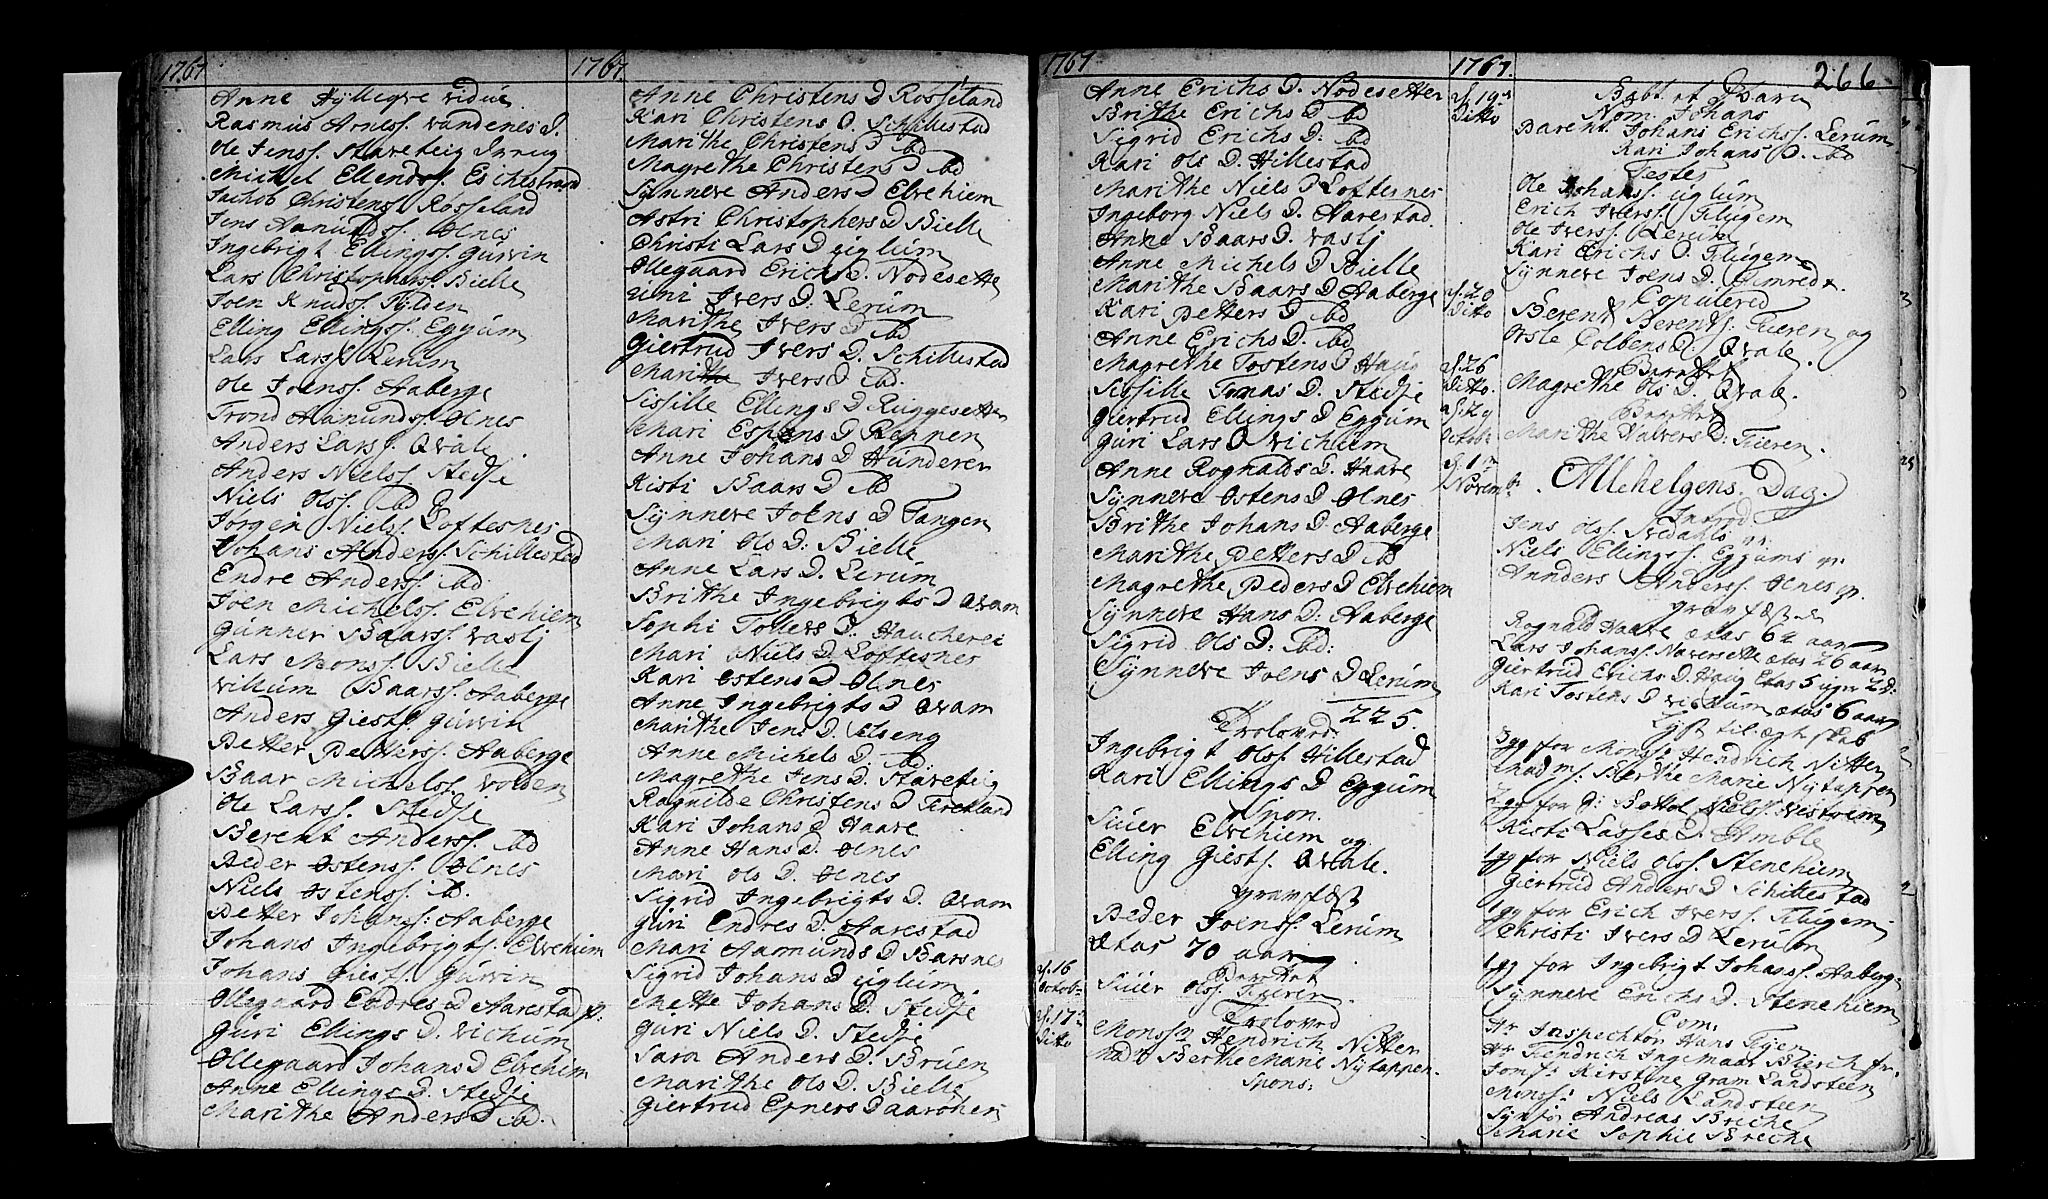 1767
Anne Hyllegre vidue
Rasmus Arness. vandenes d.
Ole Jenss. Stareteig
Michel Ellends.
Jachob Christens. Rosseland
Jens Aamunds. Olnes
Ingebrigt Ellingss. Gurvin
Lars Christophers. Bielle
Joen Knudss. Sylden
Elling Ellingss. Eggum
Lars Larss. Lerum
Ole Joenss. Aaberge
Trond Aamunds. Olnes
Anders Larss. Qvale
Anders Nielss. Stedje
Niels Olss. ibd
Jørgen Nielss. Loftesnes
Johans Anderss. Schillestad
Endre Anderss. ibd
Joen Michelss. Elvehiem
Gunner Baarss. vastj
Lars Monss. Bielle
Villum Baarss. Aaberge
Anders Giests. Gurvin
Petter Petterss. Aaberge
Baar Michelss. Volden
Ole Larss. Stedje
Berent Anderss. ibd
Peder Ostenss. Olnes
Niels Ostenss. ib.
Petter Johanss. Aaberge
Johans Ingebrigts. Elvehiem
Johans Giests. Gurvin
Ollegaard Endres D Aarestad
Guri Ellings D. Vichum
Ollegaard Johans D Elvehiem
Anne Ellings D. Stedje
Marithe Anders D ibd.
1767.
Anne Christens D Rosseland
Kari Christens D. Schillestad
Marithe Christens D ibd
Magrethe Christens D ibd
Synneve Anders D Elvehiem
Astri Christophers D Bielle
Christi Lars D Uglum
Ollegaard Erichs D. Nodesette
Uni Ivers D. Lerum
Marithe Ivers D ibd
Giertrud Ivers D. Schillestad
Mari Ivers D ibd.
Sissille Ellings D Ruggesette
Mari Espens D Reppen
Anne Johans D Hunderen
Kisti Baars D ibd
Synneve Joens D Tangen
Mari Ols D: Bielle
Anne Lars D. Lerum
Brithe Ingebrigts D Qvam
Sophi Tollevs D. Haucherei
Mari Niels D Loftesnes
Kari Ostens D Olnes
Anne Ingebrigts D Qvam
Marithe Jens D. Elseng
Anne Michels D. ibd.
Magrethe Jens D. Stareteig
Ragnilde Christens D Fierkland
Kari Johans D Haare
Anne Hans D. Olnes
Mari Ols D. Olnes
Sigrid Ingebrigts D. Qvam
Guri Endres D. Aarestad
Mari Aamunds D Barsnes
Sigrid Johans D Uglum
Mette Johans D. Stedje
Guri Niels D. Stedje
Sara Anders D. Bruen
Marithe Ols D. Bielle
Giertrud
1767
Anne Erichs D. Nodesetter
Brithe Erichs D ibd
Sigrid Erichs D: ibd
Kari Ols D. Hillestad
Marithe Niels D Loftesnes
Ingeborg Niels D. Navestad.
Anne Baars D. Vastj
Anne Michels D Bielle
Marithe Baars D Aaberge
Kari Petters D. ibd
Anne Erichs D. ibd
Magrethe Tostens D Haug
Sissille Tomas D. Stedje
Giertrud Ellings D Eggum
Guri Lars D Vichiem
Anne Rognalds D. Haare
Synneve Ostens D Olnes
Brithe Johans D. Aaberge
Marithe Petters D ib
Magrethe Peders D Elvehiem
Synneve Hans D: Aaberge
Sigrid Ols D: ibd:
Synneve Joens D Lerum
225.
Trolovd:
Ingebrigt Olss. Hillestad
Kari Ellings D Eggum
Spon.
Siuer Elvehiem og
Elling Giests. Qvale.
gravfæst
Peder Joenss. Lerum
Ætas 70 aar
d. 16 Octob
Siuer Olss. Fieren.
d. 17 Ditto
Trolovd
Monssr Hendrich Nitter
Mad. Berthe Marie Nytappen.
Spons:
1767.
266
d. 19 Ditto
Babt. et Barn
Nom. Johans
Parent. Johans Erichss. Lerum
Kari Johans D. ibd
Testes
Ole Johanss. Uglum
Erich Iverss. Flugem
Ole Iverss. Lerum
Kari Erichs D. Flugem
Synneve Joens D. Fimreite
d. 20 Ditto
Copulered
Berent Berents. Fieren og
Orsle Colbens D. Qvale.
d. 26 Ditto.
Magrethe Ols D. Qvale.
d. 29 Octob:
Marithe Halvers D: Fieren.
d. 1 Novemb:
Allehelgens Dag.
Introd
Jens Olss. Nedahls qv:
Niels Ellingss. Eggums qv.
Annders Anderss. Olnes qv.
gravfæsted
Rognald Haare ætas 62 aar
Lars Johanss. Naversette ætas 26 aar
Giertrud Erichs D. Haug Etas 5 uger 2 D:
Kari Tostens D Vichum ætas 6 aar
Lyst til ægteskab
3 gg for Monsr Hendrich Nitter
Madm: Berthe Marie Nytappen
2 gg for Bottol Nielss. Vestrem
Kisti Lasses D. Amble
1 gg for Niels Olss. Stenehiem
Giertrud Anders D Schillestad
1 gg for Erich Iverss. Flugem
Christi Ivers D Lerum
1 gg for Ingebrigt Johanss. Aaberge
Synneve Erichs D. Stenehiem
Com.
Hr Inspechtør Hans Fyen
Hr Fendrich Ingemaar Bierch
Jomf: Kirstine Gram Landsteen
Monsr: Niels Landsteen
Andreas Breche
Marie Sophie Breche